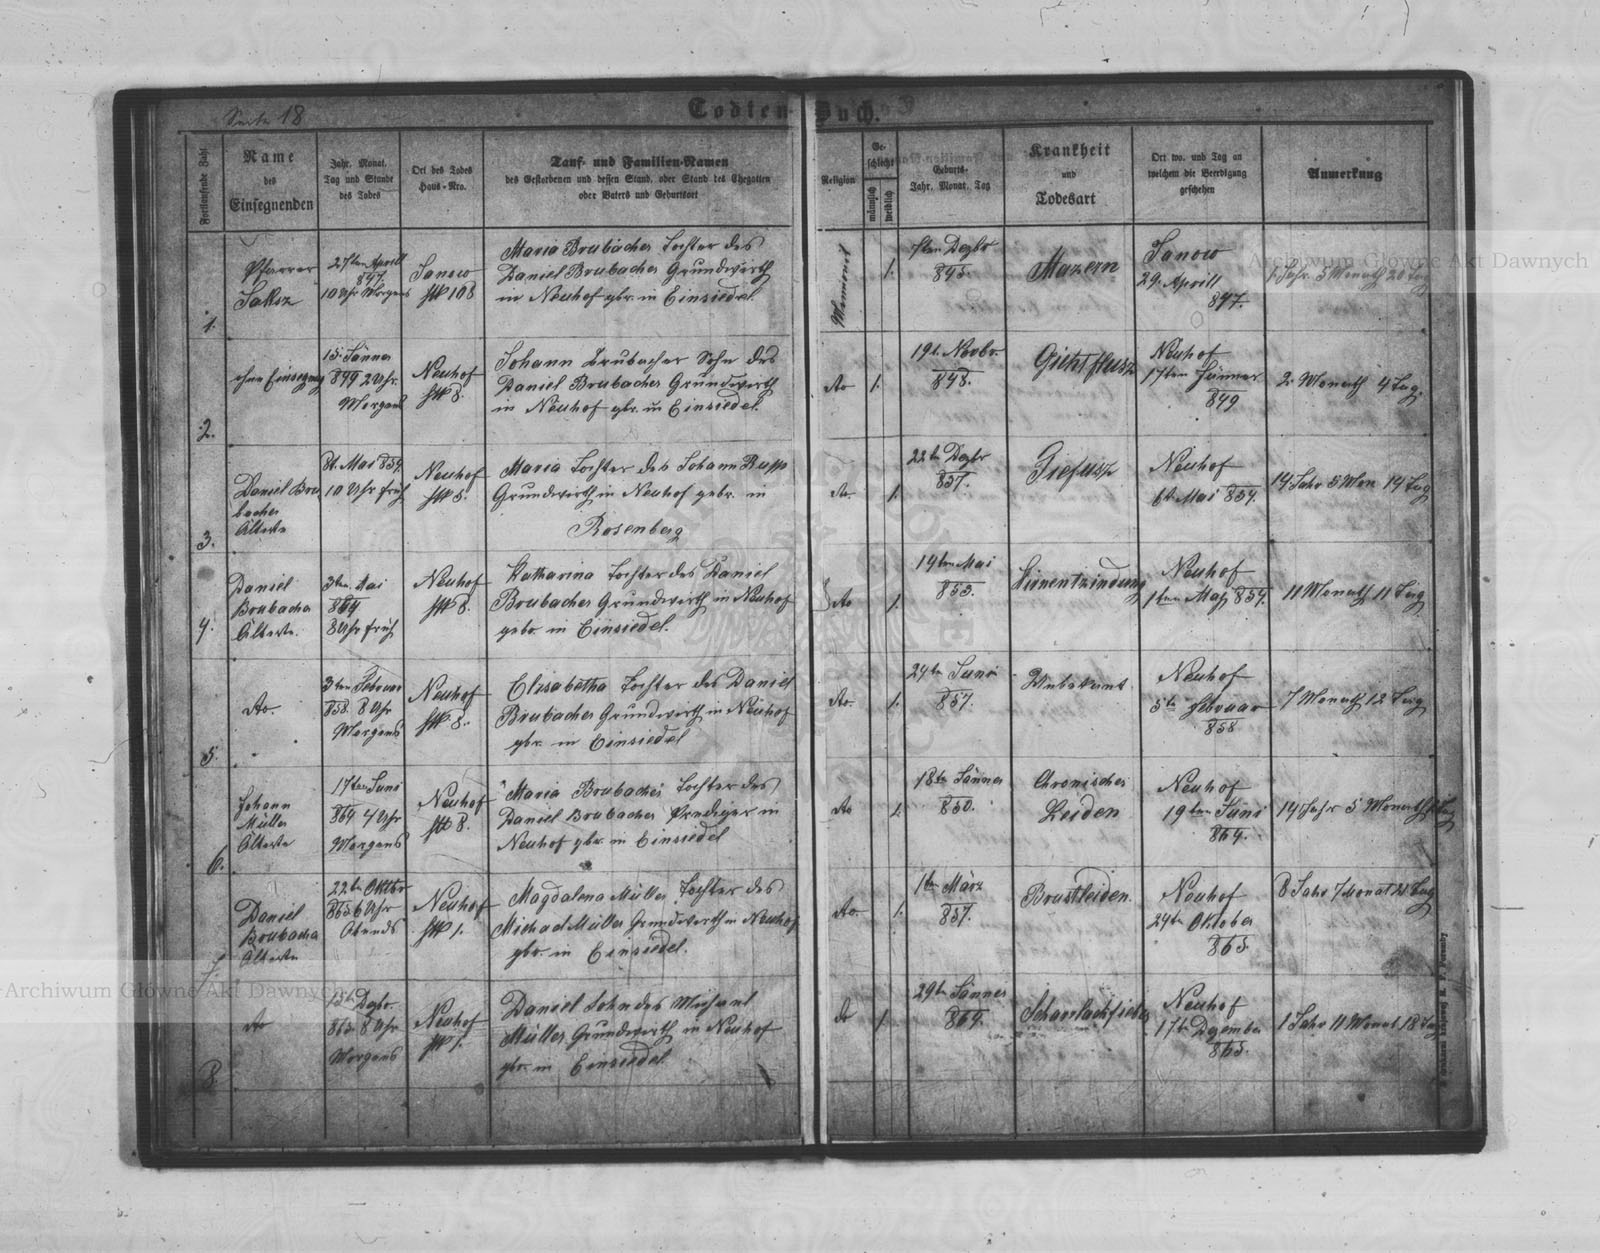 Seite 18
Todten Buch.
Fortlaufende Zahl
Name
des
Einsegnenden
Jahr, Monat,
Tag und Stunde
des Todes
Ort des Todes
Haus-Nro.
Tauf- und Familien-Namen
des Gestorbenen und dessen Stand, oder Stand des Ehegatten
oder Vaters und Geburtsort
Religion
Ge-
schlecht
männlich
weiblich
Geburts-
Jahr, Monat, Tag
Krankheit
und
Todesart
Ort wo, und Tag an
welchem die Beerdigung
geschehen
Anmerkung
1.
Pfarrer
27ten Aprill
847.
10 Uhr Morgens
Janow
№ 108
Maria Brubacher Tochter des
Daniel Brubacher Grundwirth
in Neuhof gbr. in Einsiedel.
Mennonit
1.
Dezbr
845.
Mazern
Janow
29. Aprill
847.
1. Jahr. 5 Monath 20 Tag
2.
ohne Einsegnung
15. Jänner
849 2 Uhr.
Morgens
Neuhof
№ 8.
Johann Brubacher Sohn des
Daniel Brubacher Grundwirth
in Neuhof gbr. in Einsiedel.
do
1.
19t. Novbr.
848.
Neuhof
17ten Jänner
849
2. Monath 4 Tag.
3.
Daniel Bru
bacher
Älteste
Mai 854.
10 Uhr früh
Neuhof
№ 5.
Maria Tochter des Johann Rupp
Grundwirth in Neuhof gebr. in
Rosenberg
do.
1.
22te Dezbr
Neuhof
6t. Mai 854.
14 Jahr 5 Mon 14 Tag
4.
Daniel
Brubacher
Älteste.
3ten Mai
8 Uhr früh
Neuhof
№ 8.
Katharina Tochter des Daniel
Brubacher Grundwirth in Neuhof
gebr. in Einsiedel.
do
1.
19ten Mai
853.
Neuhof
854.
11 Monath 11 Tag
5.
do.
3ten Februar
858. 8 Uhr
Morgens
Neuhof
№ 8.
Elisabetha Tochter des Daniel
Brubacher Grundwirth in Neuhof
gbr. in Einsiedel
do.
1.
24te Juni
857.
Unbekannt
Neuhof
5te Februar
858
7 Monath 12 Tag
6.
Johann
Müller
Älteste
17ten Juni
864 4 Uhr
Morgens
Neuhof
№ 8.
Maria Brubacher Tochter des
Daniel Brubacher Prediger in
Neuhof gbr. in Einsiedel
do
1.
18te Jänner
850.
Chronisches
Leiden
Neuhof
19ten Juni
864.
14 Jahr 5 Monath
7.
Daniel
Brubacher
Älteste
22te Oktbr
865 6 Uhr
Abends
Neuhof
№ 1.
Magdalena Müller Tochter des
Michael Müller Grundwirth in Neuhof
gbr. in Einsiedel.
do.
1.
1ten März
857.
Brustleiden.
Neuhof
24te Oktober
865.
8 Jahr 7 Monat 21 Tag
8.
do
15te Dezbr.
865 8 Uhr
Morgens
Neuhof
№ 1.
Daniel Sohn des Michael
Müller Grundwirth in Neuhof
gbr. in Einsiedel
do
1.
29te Jänner
864.
Scharlachfieber
Neuhof
17te Dezember
865.
1 Jahr 11 Monat 18 Tag
Archiwum Główne Akt Dawnych
Archiwum Główne Akt Dawnych